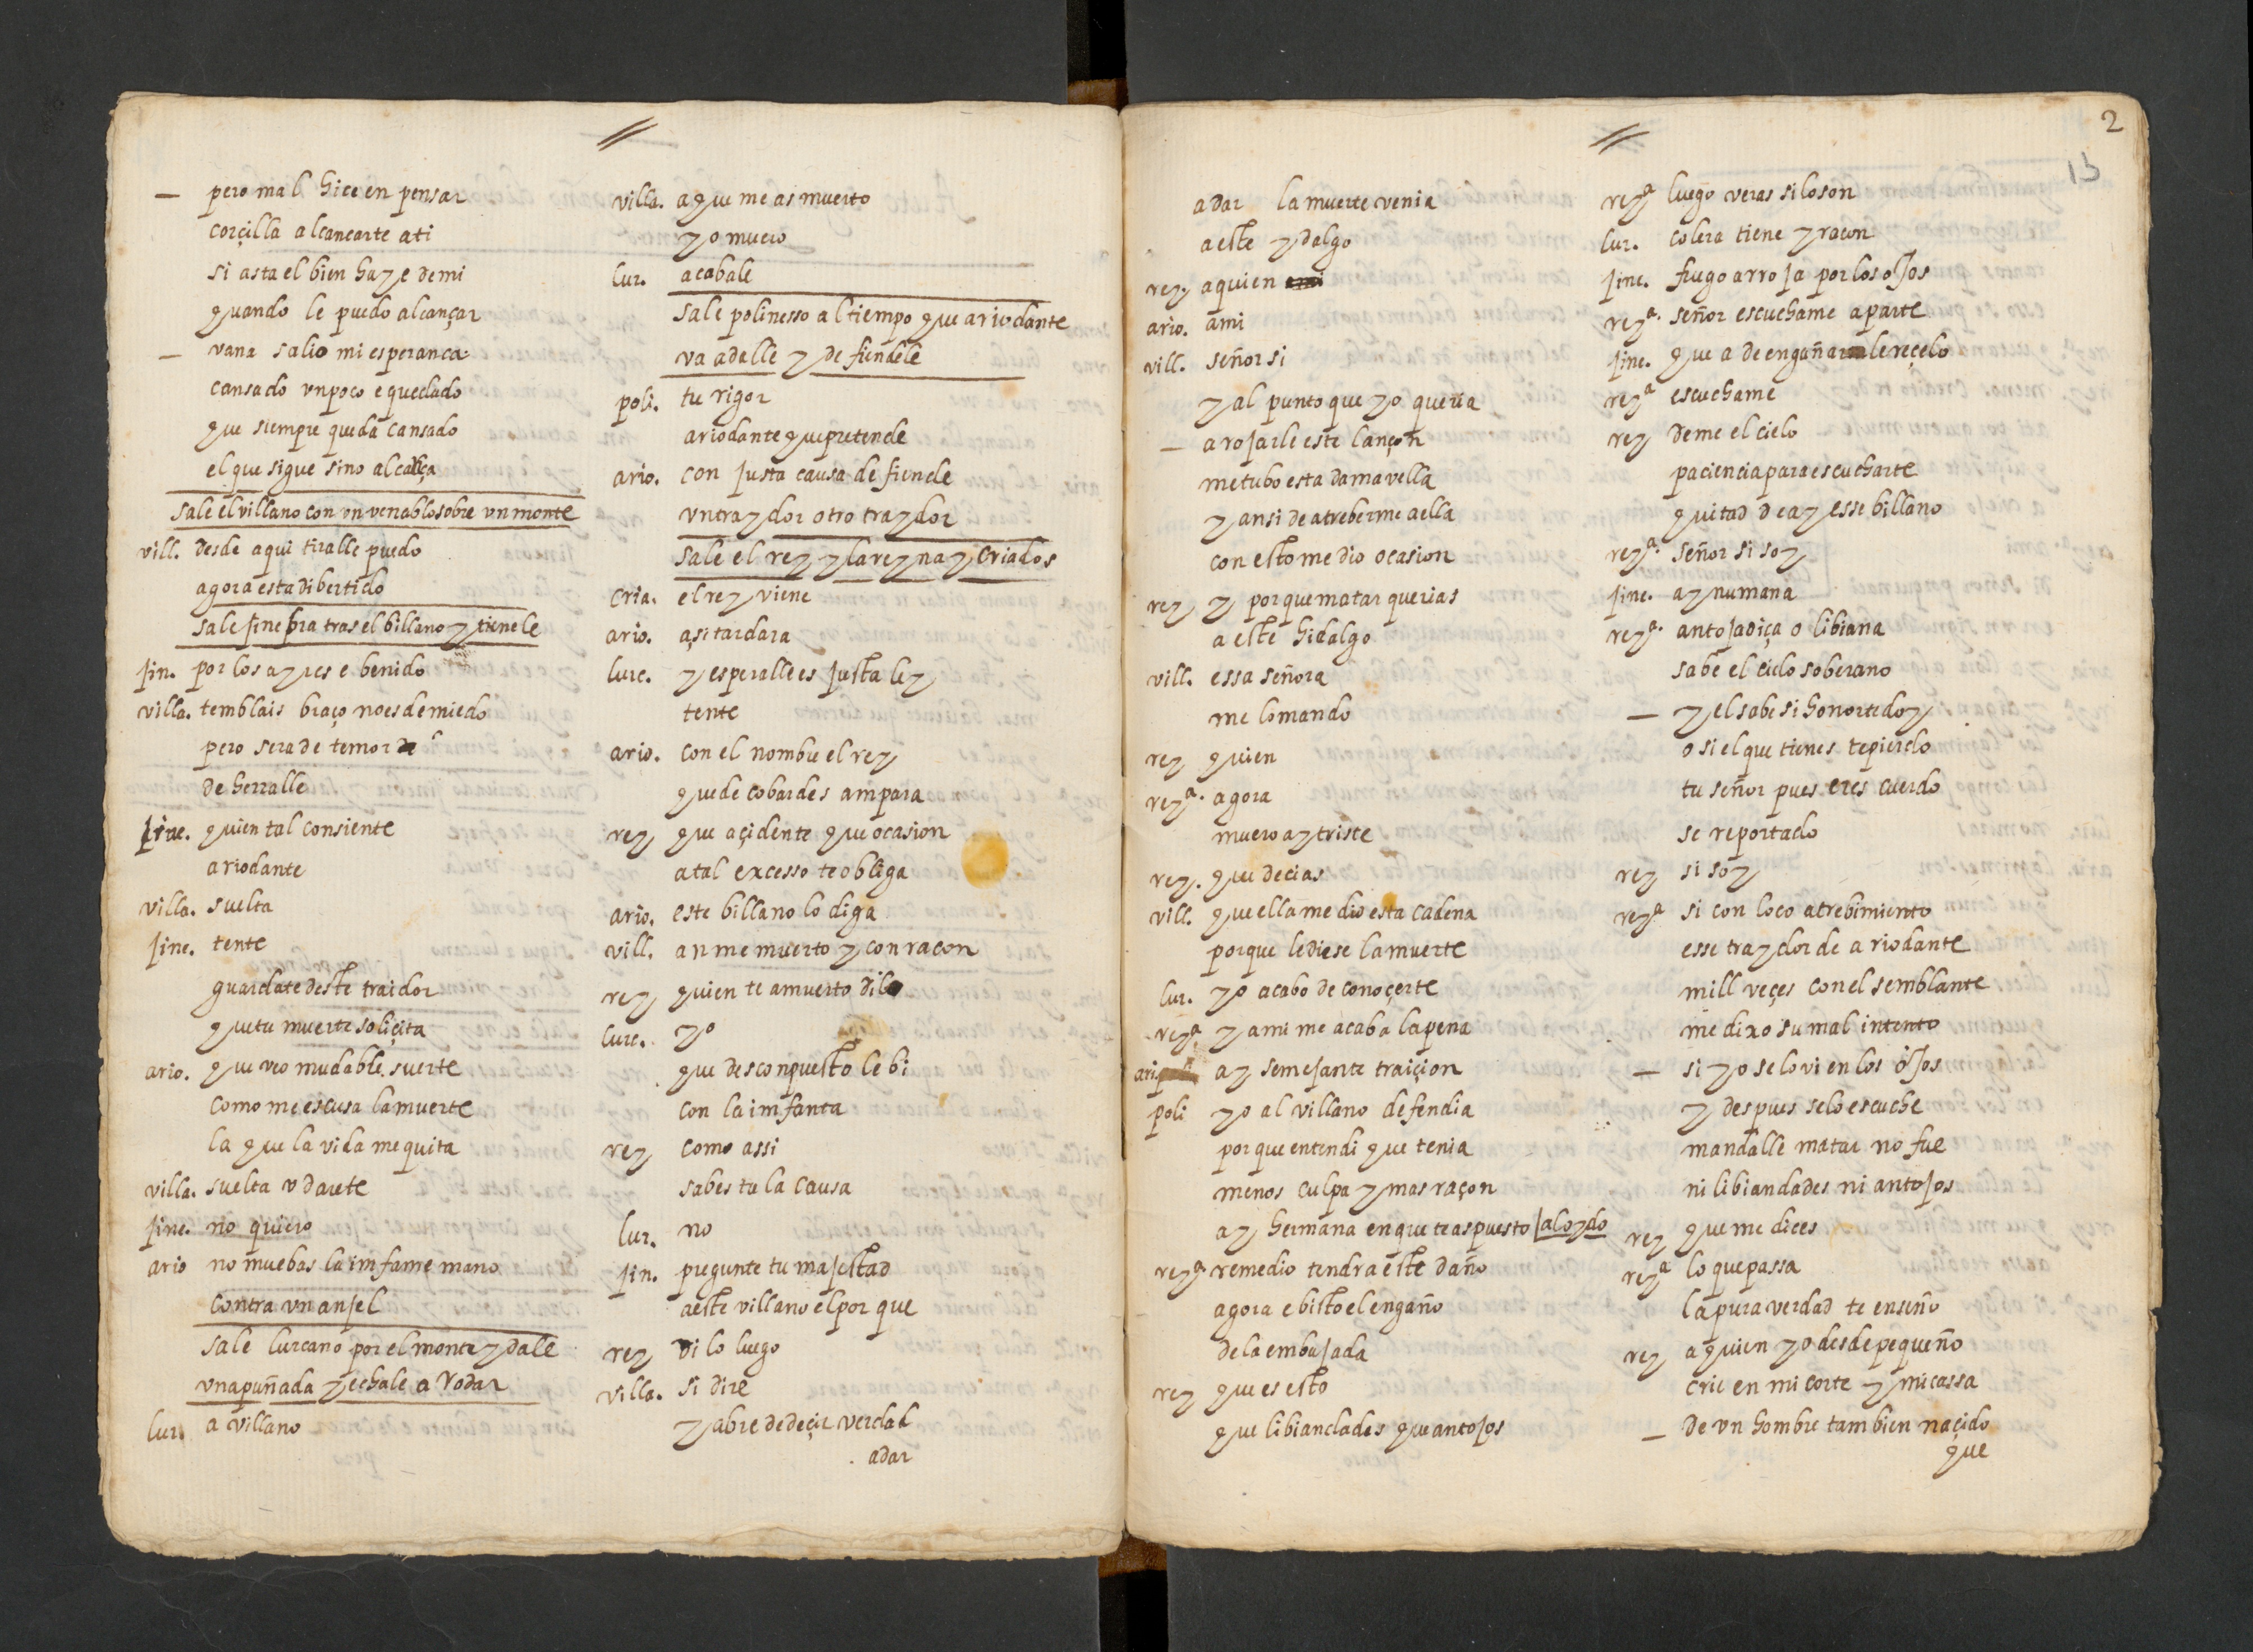 — pero mal hice en pensar
corçilla alcancarte ati
si asta el bien haze demi
quando le puedo alcançar
— vana salio mi esperanca
cansado vn poco e quedado
que siempre queda cansado
el que sigue sino alcança
sale el villano con vn venablo sobre vn monte
vill. desde aqui tiralle puedo
agora esta dibertido
sale jinebra tras el billano y tienele
jin. por los ayres e benido
villa. temblais braço no es de miedo
pero sera de temor
de herralle
jine. quien tal consiente
ariodante
villa. suelta
jine. tente
guardate deste traidor
que tu muerte soliçita
ario. que veo mudable suerte
como me escusa la muerte
la que la vida me quita
villa. suelta v darete
jine. no quiero
ario no muebas la imfame mano
contra vn anjel
sale lurcano por el monte y dale
vna puñada y echale a Rodar
lur. a villano
villa. a que me as muerto
yo muero
lur. acabale
sale polinesso al tiempo que ariodante
va a dalle y defiendele
poli. tu rigor
ariodante que pretende
ario. con justa causa defiende
vn traydor otro traydor
sale el rey y la reyna y criados
cria. el rey viene
ario. açi tardara
lurc. y esperalle es justa ley
tente
ario. con el nombre el rey
que de cobardes ampara
rey que açidente que ocasion
a tal excesso te obliga
ario. este billano lo diga
vill. an me muerto y con racon
rey quien te a muerto dilo
lurc. yo
que desconpuesto le bi
con la imfanta
rey como assi
sabes tu la causa
lur. no
jin. pregunte tu majestad
a este villano el por que
rey dilo luego
villa. si dire
y abre de deçir verdad
adar
2
13
adar la muerte venia
a este ydalgo
rey. a quien
ario. ami
vill. señor si
y al punto que yo queria
— arojarle este lançon
me tubo esta dama vella
y ansi de atreberme a ella
con esto me dio ocasion
rey y por que matar querias
a este hidalgo
vill. essa señora
me lo mando
rey quien
reyª. agora
muero ay triste
rey. que decias
vill. que ella me dio esta cadena
porque le diese la muerte
lur. yo acabo de conoçerte
reyª y ami me acaba la pena
ari ay semejante traiçion
poli yo al villano defendia
por que entendi que tenia
menos culpa y mas raçon
ay hermana en que te as puesto / al oydo
reyª. remedio tendra este daño
agora e bisto el engaño
de la embajada
rey que es esto
que libiandades que antojos
reyª luego veras si lo son
lur. colera tiene y racon
jine. fuego arroja por los ojos
reyª. señor escuchame aparte
jine. que a de engañarle reçelo
reyª escuchame
rey deme el cielo
paciencia para escucharte
quitad de ay esse billano
reyª. señor si soy
jine. ay numana
reyª. antojadiça o libiana
sabe el cielo soberano
— y el sabe si honor te doy
o si el que tienes te pierdo
tu señor pues eres cuerdo
se reportado
rey si soy
reyª si con loco atrebimiento
esse traydor de ariodante
mill veçes con el semblante
me dixo su mal intento
— si yo se lo vi en los ojos
y despues se lo escuche
mandalle matar no fue
ni libiandades ni antojos
rey que me dices
reyª lo que passa
la pura verdad te enseño
rey a quien yo desde pequeño
crie en mi corte y mi cassa
— de vn hombre tambien naçido
que